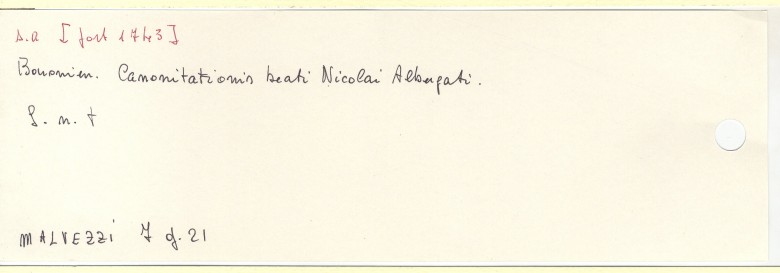 s.a [fort 1743]
Bononien. Canonitationis beati Nicolai Albergati.
S. n. t
MALVEZZI 7 g. 21